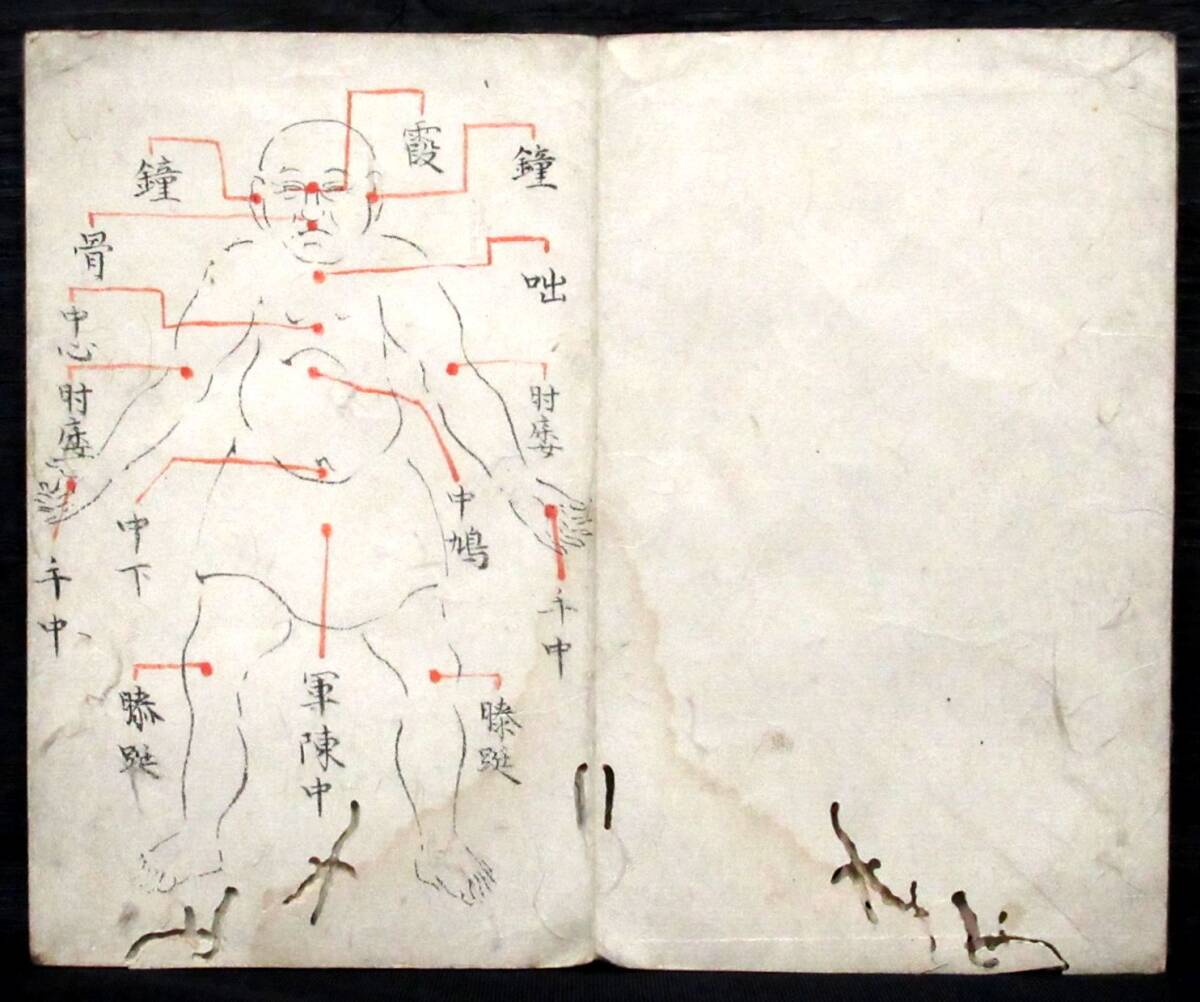 霞
鐘
鐘
骨
咄
中
心
肘
肘
中
鳩
中
下
手
中
手
中
膝
膝
軍
陳
中